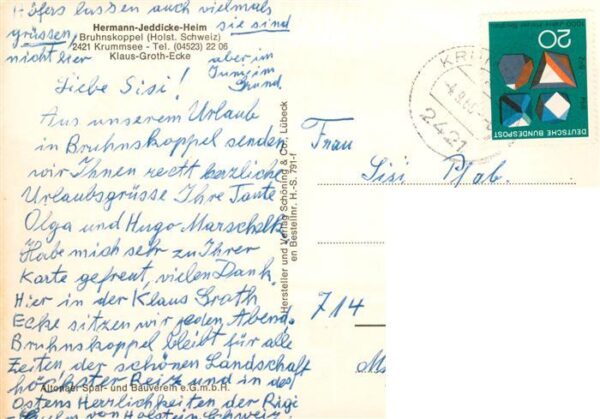 Höfers lassen auch vielmals
grüssen, sie sind
nicht hier aber im
Hermann-Jeddicke-Heim
Bruhnskoppel (Holst. Schweiz)
2421 Krummsee - Tel. (04523) 22 06
Klaus-Groth-Ecke
Liebe Sisi!
Aus unserem Urlaub
in Bruhnskoppel senden
wir Ihnen recht herzliche
Urlaubsgrüsse Ihre Tante
Olga und Hugo Marschalk
Habe mich sehr zu Ihrer
Karte gefreut, vielen Dank.
Hier in der Klaus Groth
Ecke sitzen wir jeden Abend.
Bruhnskoppel bleibt für alle
Zeiten, der schönen Landschaft
höchster Reiz und in des
Ostens Herrlichkeiten der
von Holstein Schweiz
Altonaer Spar- und Bauverein e.G.m.b.H.
Hersteller und Verlag Schöning & Co., Lübeck
en Bestellnr. H.-S. 791-f
Frau
Sisi Pfab.
714
20
DEUTSCHE BUNDESPOST
2421